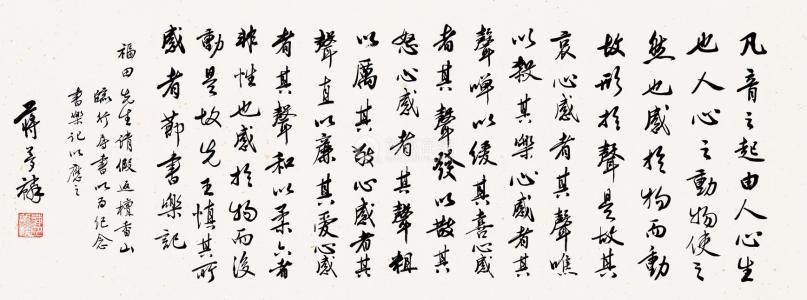 凡音之起由人心生
也人心之動物使之
然也感於物而動
故形於聲是故其
哀心感者其聲噍
以殺其樂心感者其
聲嘽以緩其喜心感
者其聲發以散其
怒心感者其聲粗
以厲其敬心感者其
聲直以廉其愛心感
者其聲和以柔六者
非性也感於物而後
動是故先王慎其所
感者節書樂記
福田先生請假返檀香山
臨行書以為紀念
書樂記以應之
蔣